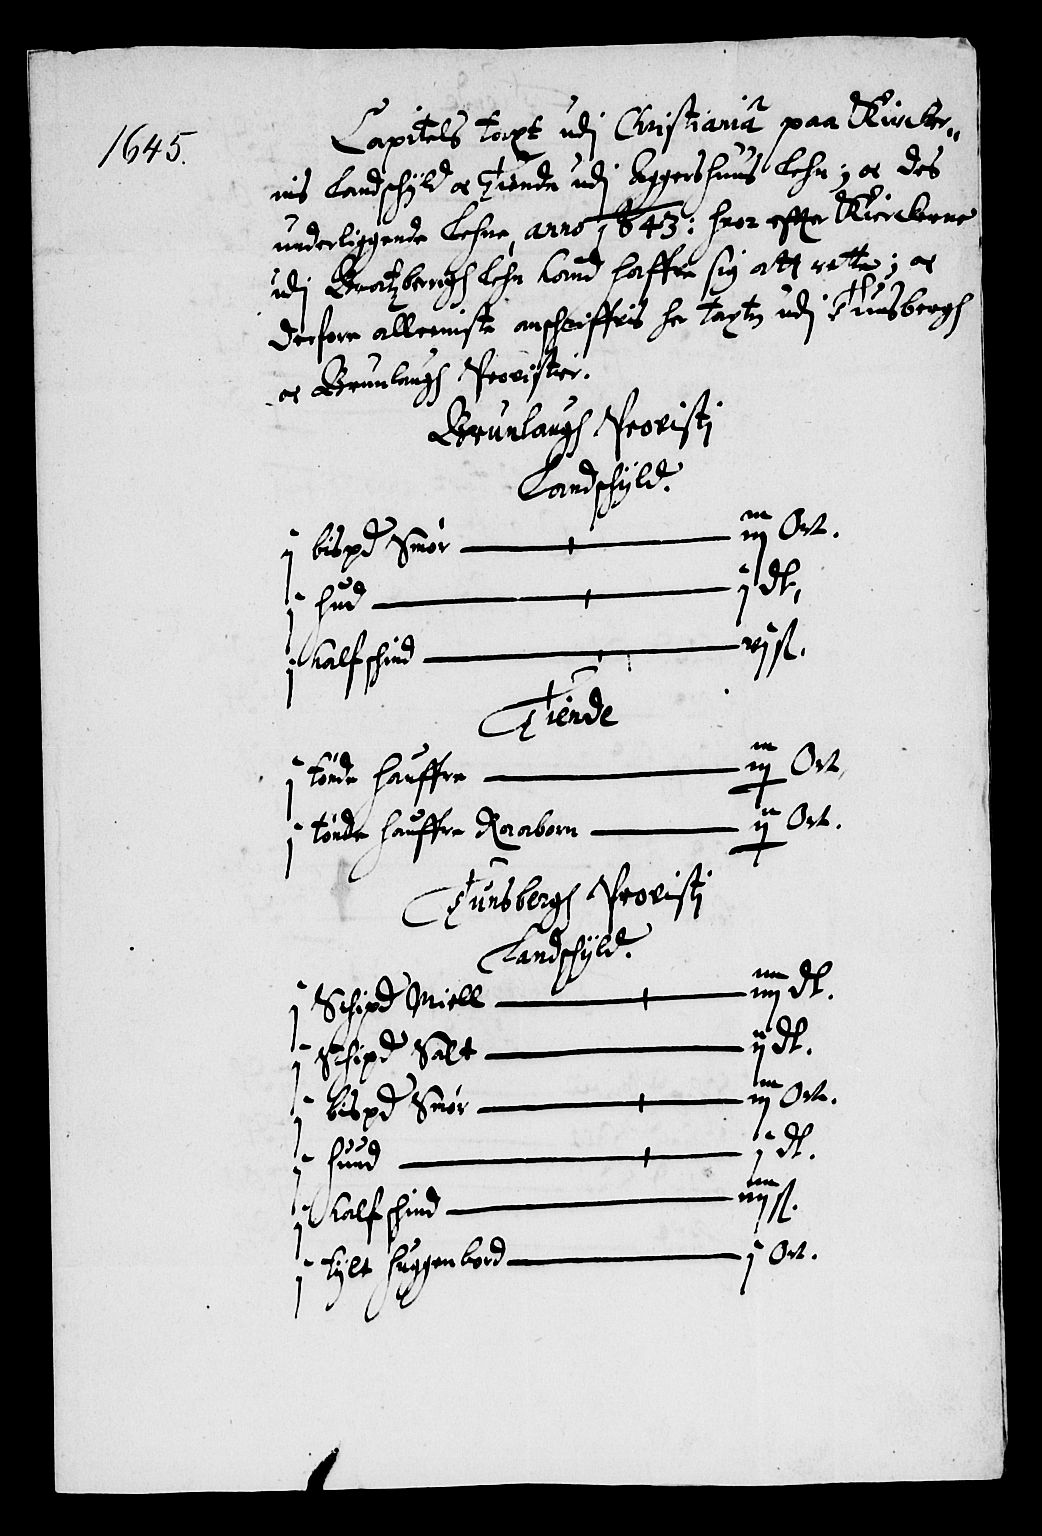 1645.
Capitels taxt udj Christiania paa Kircker¬
nis Landschÿld oc Tiende udj Aggershuus Lehn; oc des
underliggende Lehne, anno 1643: hvor effter Kierckerne
udj Bratzberrigh Lehn kand haffue sig att rette; oc
derfore alleeniste anschriffuis her taxten udj Thunsbergh
oc Brunlaugh Provistier.
Brunlaugh Provistj
Landschÿld.
j bispd Smør iij Ort.
j hud j dl,
j Kalfschind vj ß.
Tiende
j tønde hauffre iij Ort,
j tønde hauffre Raaborn ij Ort.
Tunsbergh Provistj
Landschÿld.
j Schipd Miell iiij dl.
j Schipd Salt ij dl.
j bispd Smør iij Ort.
j huud j dl.
j Kalfschind ß.
j tÿlt huggenbord j Ort.